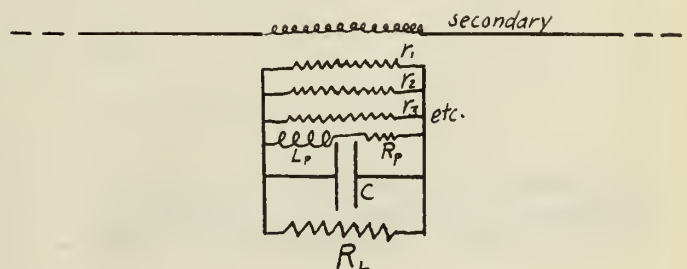 secondary
r₁
r₂
r₃ etc.
Lₚ Rₚ
C
R_L